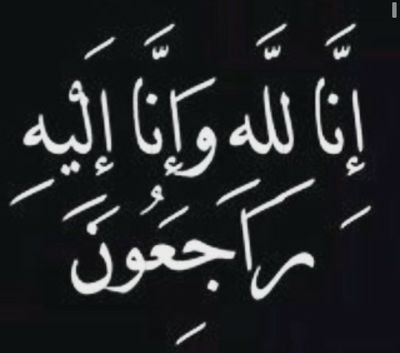 إِنَّا لِلّهِ وَإِنَّا إِلَيْهِ
رَاجِعُونَ